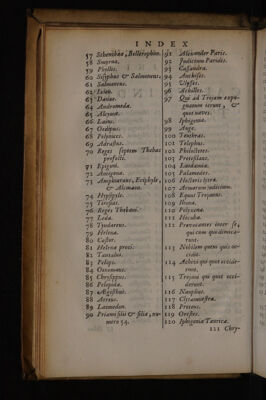 INDEX
57 Sthenobœa, Bellerophon.
58 Smyrna.
59 Phyllis.
60 Sisyphus & Salmoneus.
61 Salmoneus.
62 Ixion.
63 Danae.
64 Andromeda.
65 Alcyone.
66 Laius.
67 Oedipus.
68 Polynices.
69 Adrastus.
70 Reges septem Thebas
profecti.
71 Epigoni.
72 Antigona.
73 Amphiaraus, Eriphyle,
& Alcmæon.
74 Hypsipyle.
75 Tiresias.
76 Reges Thebani.
77 Leda.
78 Tyndareus.
79 Helena.
80 Castor.
81 Helenæ proci.
82 Tantalus.
83 Pelops.
84 Oenomaus.
85 Chrysippus.
86 Pelopia.
87 Ægisthus.
88 Atreus.
89 Laomedon.
90 Priami filii & filiæ, nu-
mero 54.
91 Alexander Paris.
92 Judicium Paridis.
93 Cassandra.
94 Anchises.
95 Ulysses.
96 Achilles.
97 Qui ad Trojam expu-
gnatum ierunt, &
quot naves.
98 Iphigenia.
99 Auge.
100 Teuthras.
101 Telephus.
102 Philoctetes.
103 Protesilaus.
104 Laodamia.
105 Palamedes.
106 Hectoris lytra.
107 Armorum judicium.
108 Equus Trojanus.
109 Iliona.
110 Polyxena.
111 Hecuba.
112 Provocantes inter se,
qui cum quo dimica-
runt.
113 Nobilem quem quis oc-
cidit.
114 Achivi qui quot occide-
runt.
115 Trojani qui quot occi-
derunt.
116 Nauplius.
117 Clytæmnestra.
118 Proteus.
119 Orestes.
120 Iphigenia Taurica.
121 Chry-